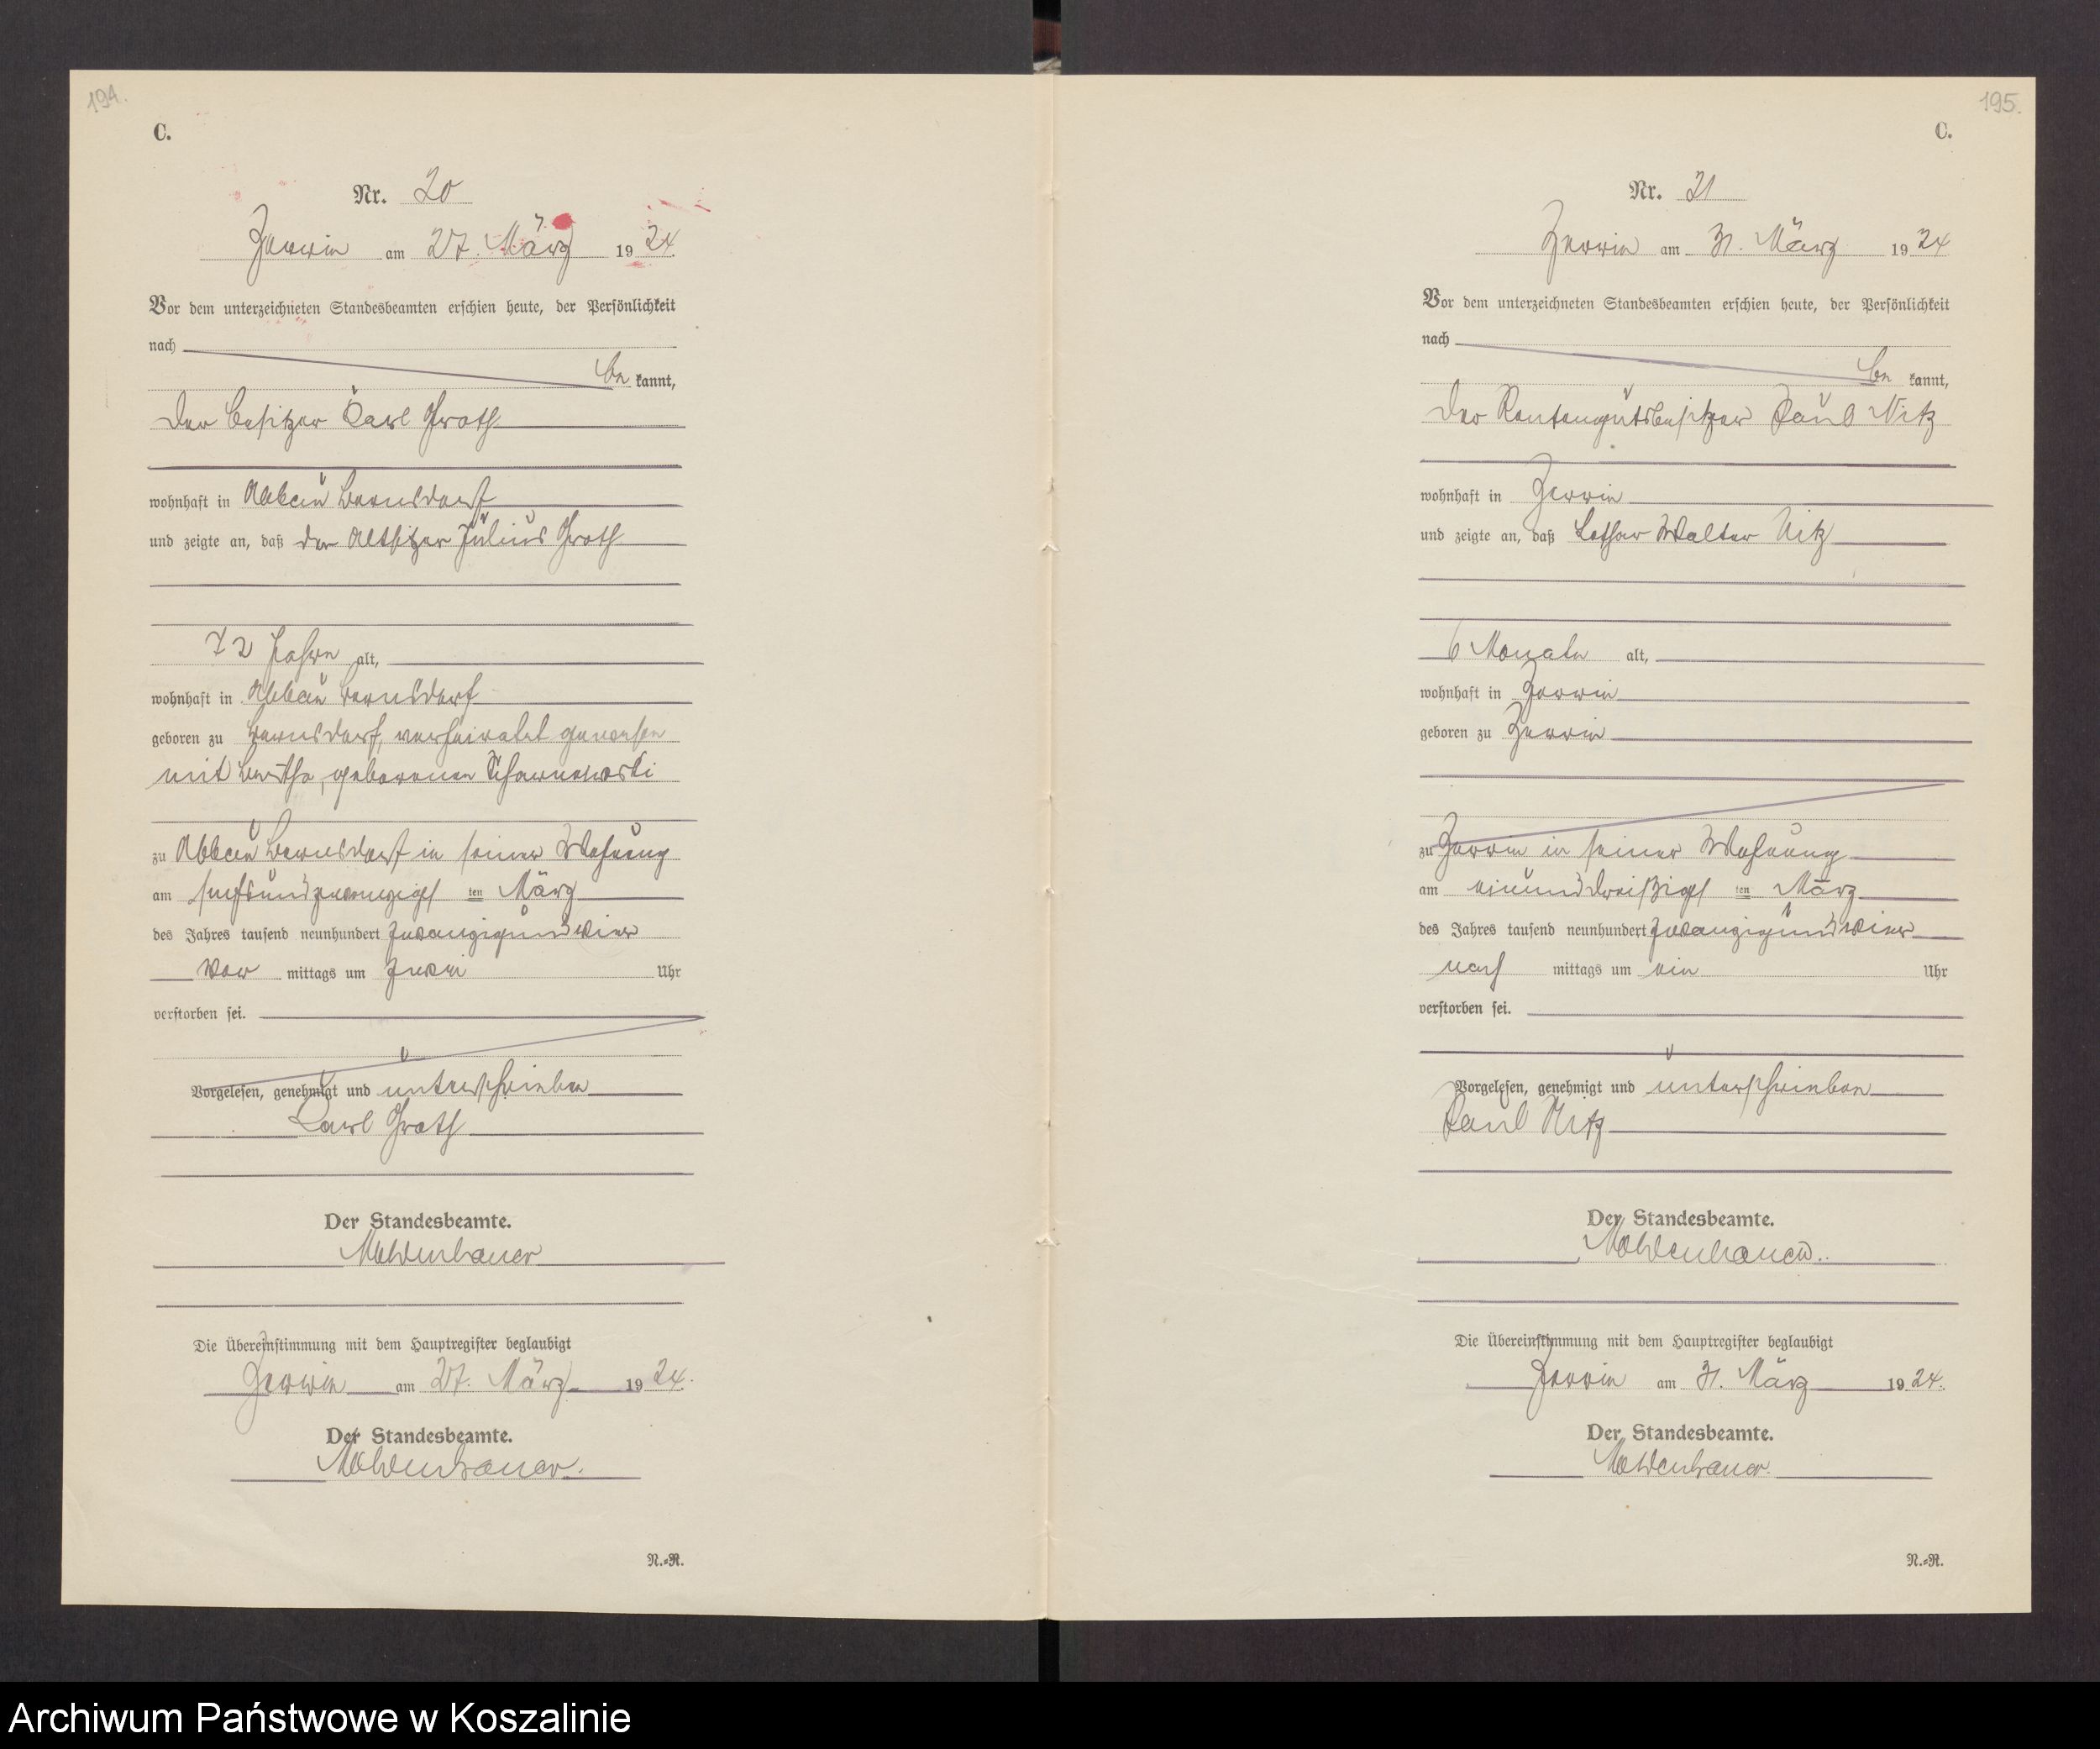 194.
C.
Nr. 20
Zerrin am 27. März 1924.
Vor dem unterzeichneten Standesbeamten erschien heute, der Persönlichkeit
nach
be kannt,
der Besitzer Karl Groth
wohnhaft in Abbau Bernsdorf
und zeigte an, daß der Altsitzer Julius Groth
72 Jahre alt,
wohnhaft in Abbau Bernsdorf
geboren zu Bernsdorf, verheiratet gewesen
mit Bertha, geborenen
zu Abbau Bernsdorf in seiner Wohnung
am fünfundzwanzigs ten März
des Jahres tausend neunhundert zwanzigundvier
vor mittags um zwei Uhr
verstorben sei.
Vorgelesen, genehmigt und unterschrieben
Karl Groth
Der Standesbeamte.
Moldenhauer
Die Übereinstimmung mit dem Hauptregister beglaubigt
Zerrin am 27. März 1924.
Der Standesbeamte.
Moldenhauer.
N.-R.
195.
C.
Nr. 21
Zerrin am 31. März 1924
Vor dem unterzeichneten Standesbeamten erschien heute, der Persönlichkeit
nach
be kannt,
der Rentengutsbesitzer Paul Nitz
wohnhaft in Zerrin
und zeigte an, daß Lothar Walter Nitz
6 Monate alt,
wohnhaft in Zerrin
geboren zu Zerrin
zu Zerrin in seiner Wohnung
am einunddreißigs ten März
des Jahres tausend neunhundert zwanzigundvier
nach mittags um ein Uhr
verstorben sei.
Vorgelesen, genehmigt und unterschrieben
Paul Nitz
Der Standesbeamte.
Moldenhauer.
Die Übereinstimmung mit dem Hauptregister beglaubigt
Zerrin am 31. März 1924.
Der Standesbeamte.
Moldenhauer.
N.-R.
Archiwum Państwowe w Koszalinie